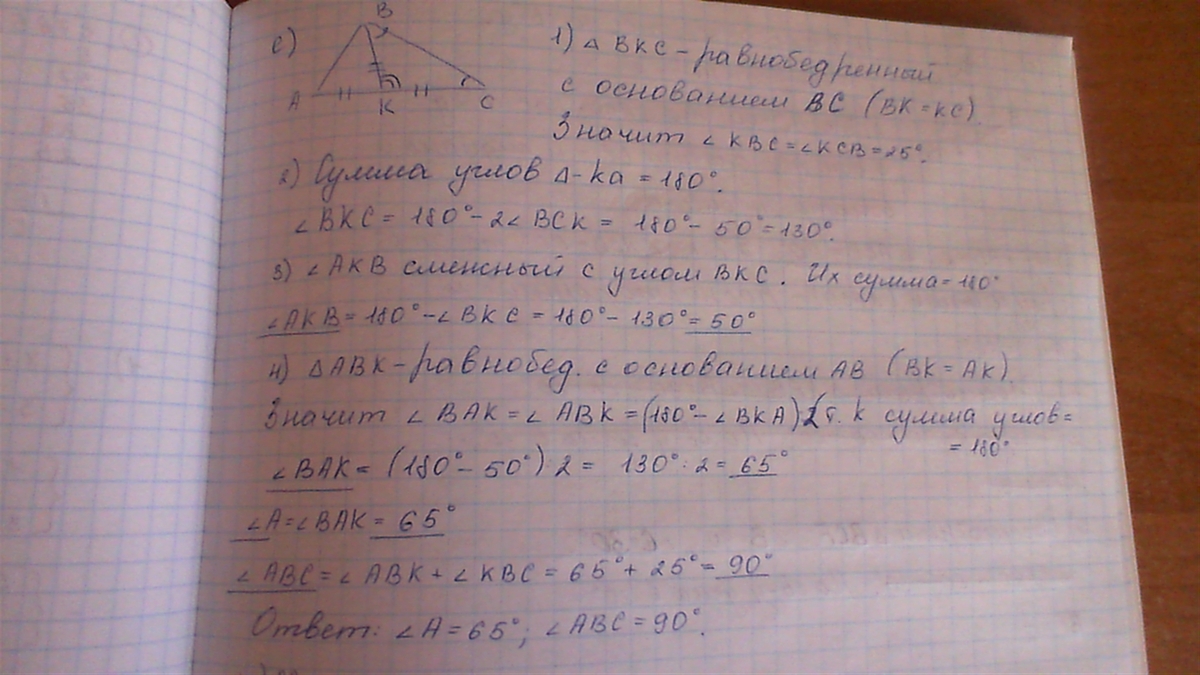 е)
B
A
K
C
1) △ BKC - равнобедренный
с основанием BC (BK = KC).
Значит ∠KBC = ∠KCB = 25°.
2) Сумма углов △-ka = 180°.
∠BKC = 180° - 2∠BCK = 180° - 50° = 130°.
3) ∠AKB смежный с углом BKC. Их сумма = 180°
∠AKB = 180° - ∠BKC = 180° - 130° = 50°
4) △ABK - равнобед. с основанием AB (BK = AK).
Значит ∠BAK = ∠ABK = (180° - ∠BKA):2 т. к сумма углов =
= 180°
∠BAK = (180° - 50°):2 = 130°:2 = 65°
∠A = ∠BAK = 65°
∠ABC = ∠ABK + ∠KBC = 65° + 25° = 90°
Ответ: ∠A = 65°; ∠ABC = 90°.